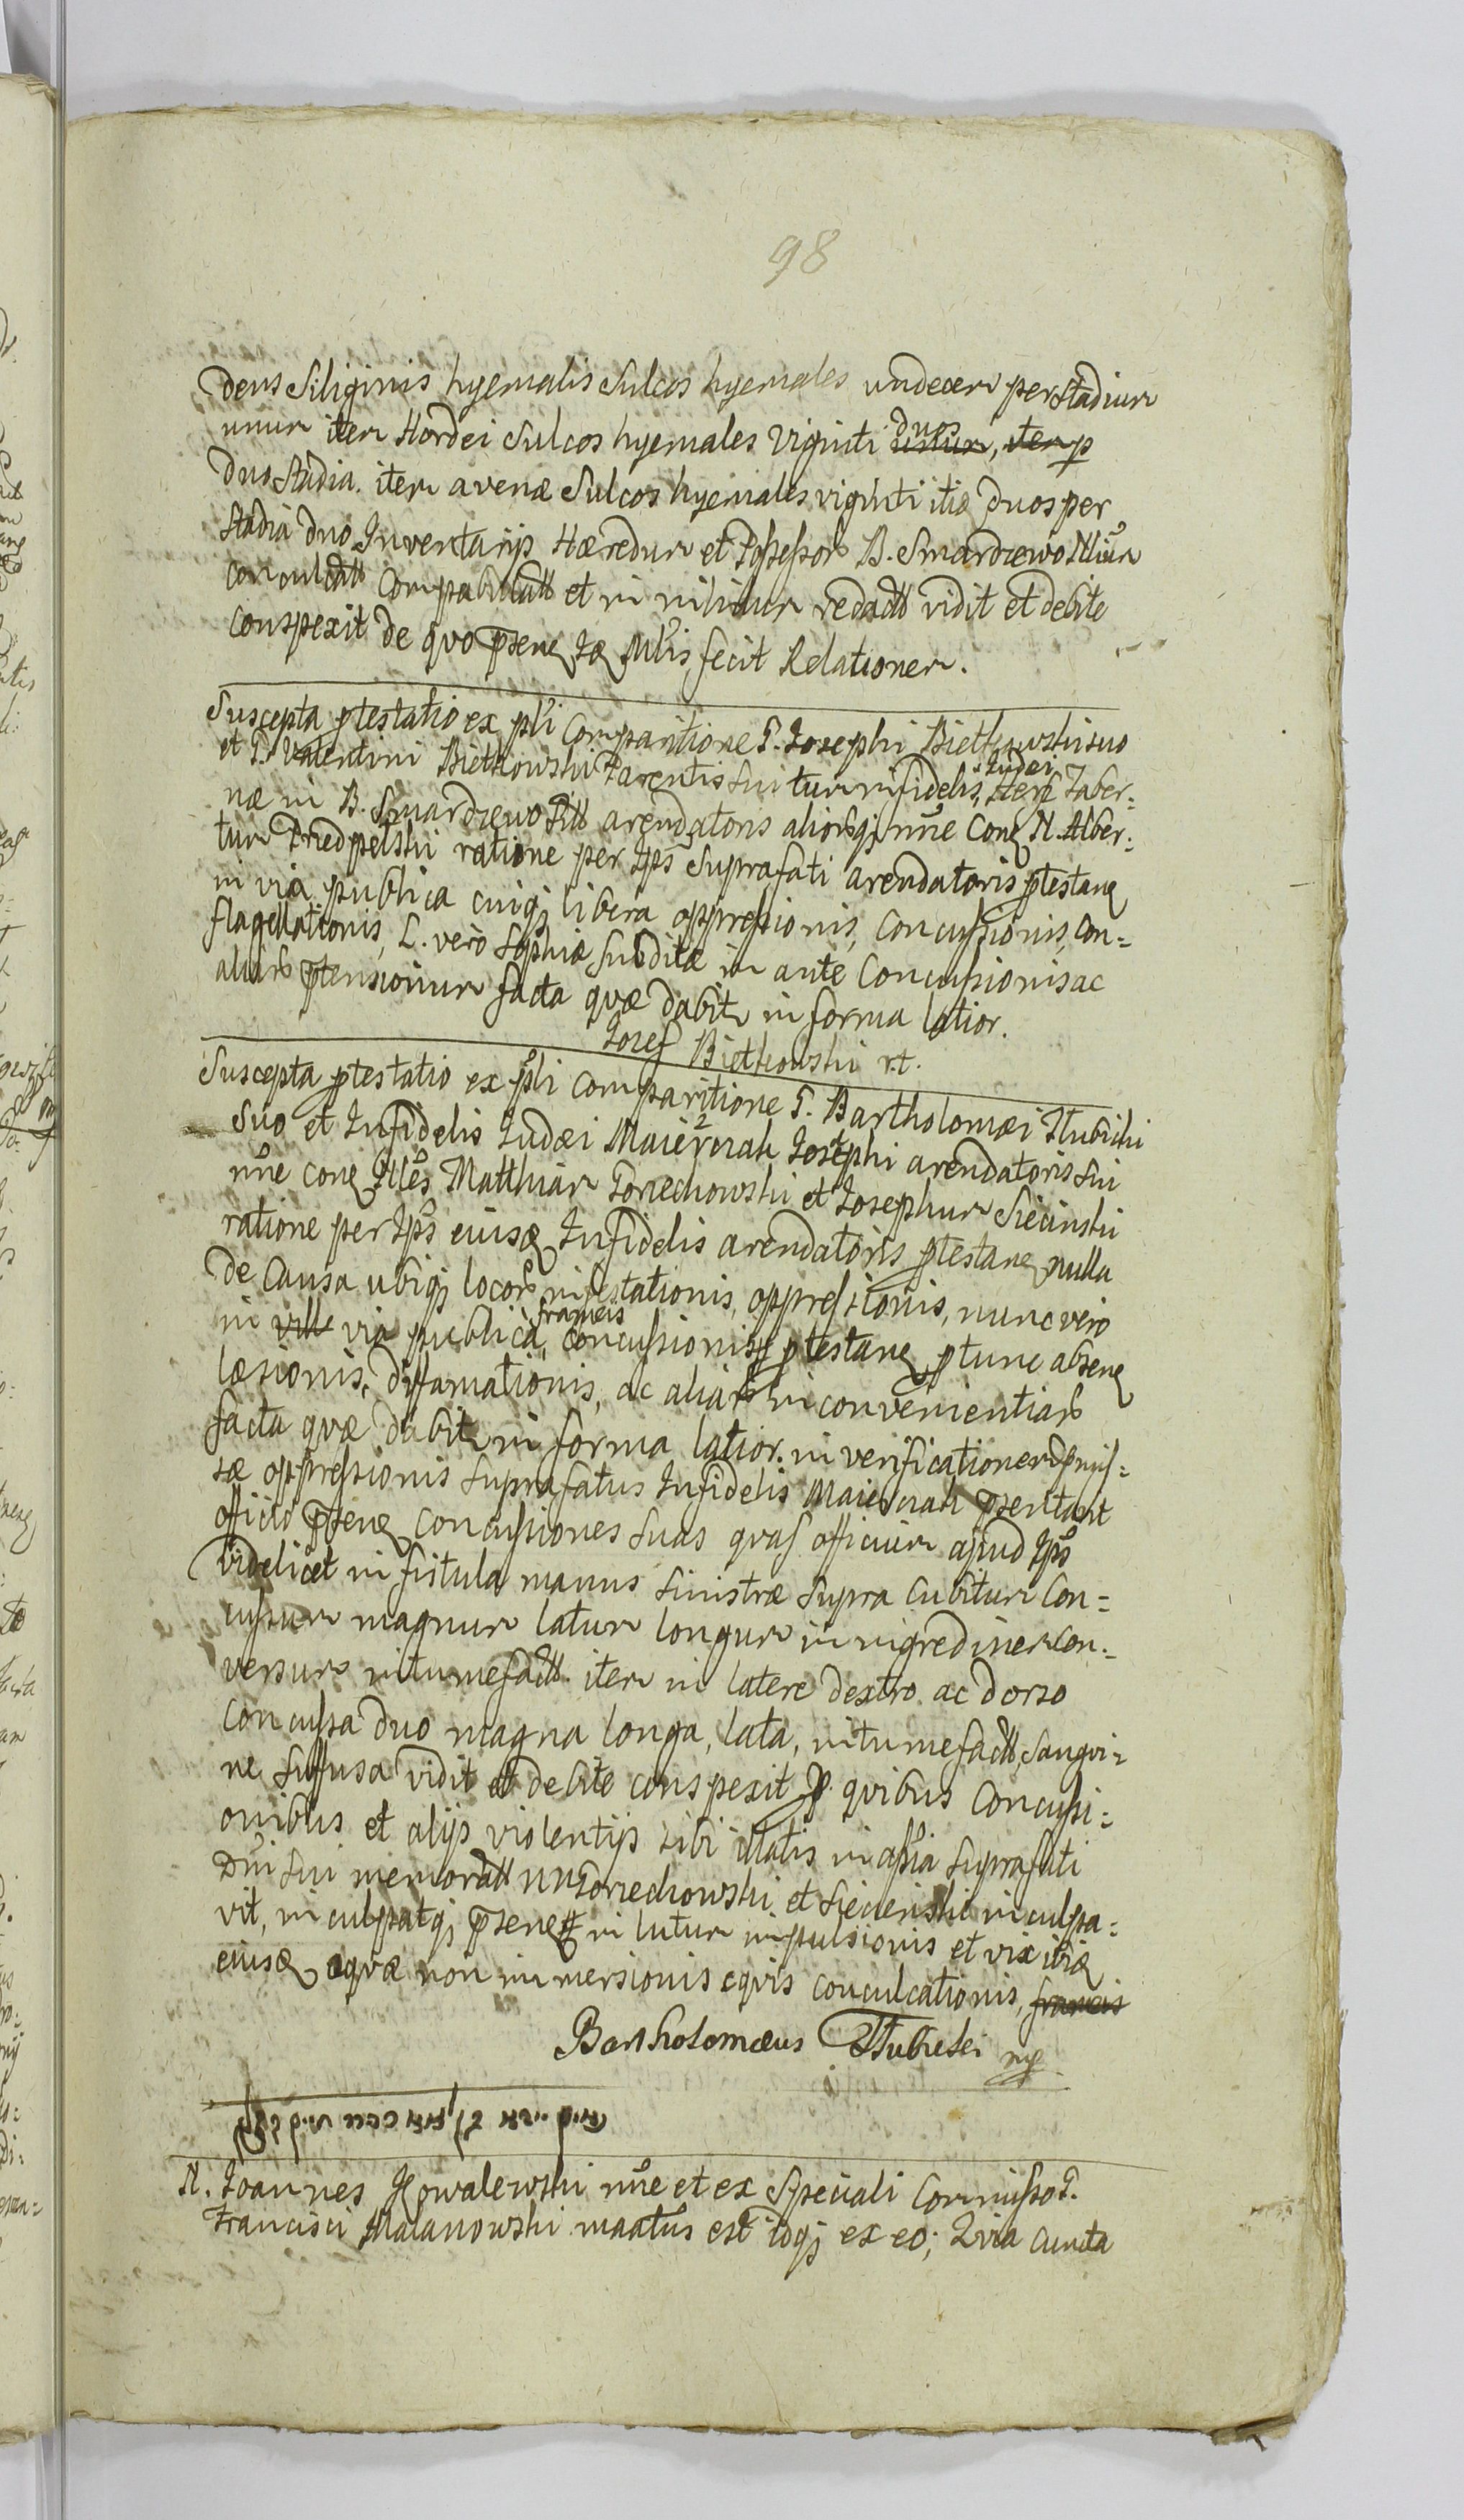 98
dens Siliginis hyemalis Sulcos hyemales undecem per stadium
unum item Hordei Sulcos hyemales Viginti duos, item p
duo stadia. item avenæ Sulcos hyemales viginti itid duos per
stadia duo Inventarijs Hæredum et Possessor B. Smardzewo Nlium
conculcatt compabulatt et in nihilum redactt vidit et debite
conspexit de quo psenq Jq Mtris fecit Relationem.
Suscepta ptestatio ex pli Comparitione G. Josephi Bietkowski suo
et G. Valentini Bietkowski Parentis sui tum infidelis Judei Taber=
næ in B. Smardzewo Sitt arendatoris aliorqj nne Conq N. Alber=
tum Przedpełski ratione per Jps Suprafati arendatoris ptestanq
in via publica cuiqj libera oppressionis, Concussionis, Con=
flagellationis, L. vero Sophiæ Subditæ in ante Concussionis ac
aliar ptensionum facta quæ dabit in forma latior.
Jozef Bietkowski rt.
Suscepta ptestatio ex pli Comparitione G. Bartholomæi Hubicki
Suo et Infidelis Judæi Josephi arendatoris sui
nne conq Matthiam Gorzechowski et Josephum Siecinski
ratione per Jps eiusq Infidelis arendatoris ptestanq nulla
de Causa ubiqj locor infestationis, oppressionis, nunc vero
in ville via publica, frameis concussionisq ptestanq ptunc absenq
læsionis, diffamationis, ac aliar in convenientiar
facta quæ dabit in forma latior. in verificationem pmis=
sæ oppressionis Suprafatus Infidelis psentavit
officio psenq concussiones suas quas officium apud Jps
videlicet in fistula manus Sinistræ Supra Cubitum Con=
cussum magnum latum longum in nigredinem Con=
versum intumefactt. item in latere dextro ac dorso
Concussa duo magna longa, lata, intumefactt, Sangvi=
ne Suffusa vidit et debite conspexit p. quibus Concussi=
onibus et alijs violentijs sibi illatis in assia Suprafati
Dni sui memoratt NN Gorzechowski et Siecinski inculpa=
vit, inculpatqj psenq in lutum impulsionis et vix
eiusq aquæ non inmersionis equis conculcationis, frameis
Bartholomæus Hubicki mp
N. Joannes Kowalewski nne et ex Speciali Commisso G.
Francisci Malanowski maatus est idqj ex eo; Quia cuncta